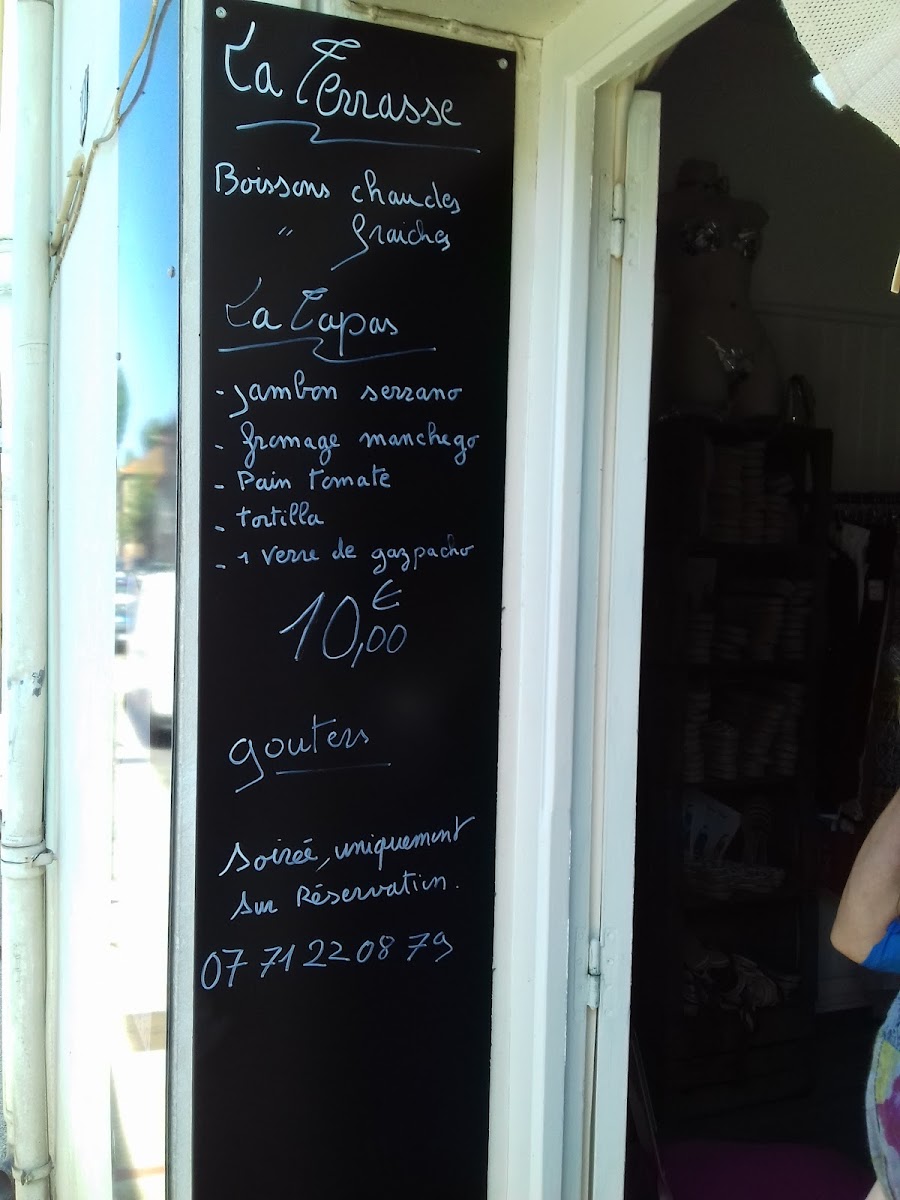 La Terrasse
Boissons chaudes
" fraiches
La Tapas
- jambon serrano
- fromage manchego
- Pain tomate
- tortilla
- 1 verre de gazpacho
10,00 €
gouters
Soirée, uniquement
sur Réservation.
07 71 22 08 79